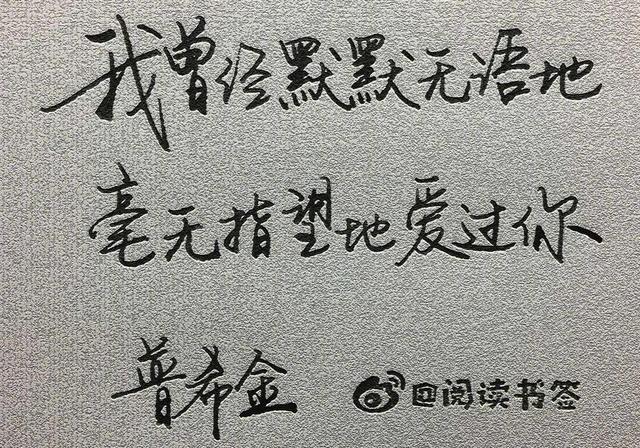 我曾经默默无语地
毫无指望地爱过你
普希金
@阅读书签